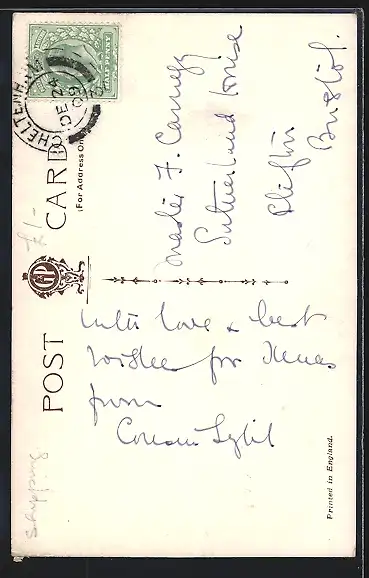 HALF PENNY
CHELTENHAM
DE 24
09
POST CARD
(For Address Only)
£1/-
GP
Master F. Carnegy
Sutherland House
Clifton
Bristol.
With love & best
wishes for Xmas
from
Cousin Sybil
Printed in England.
Shipping